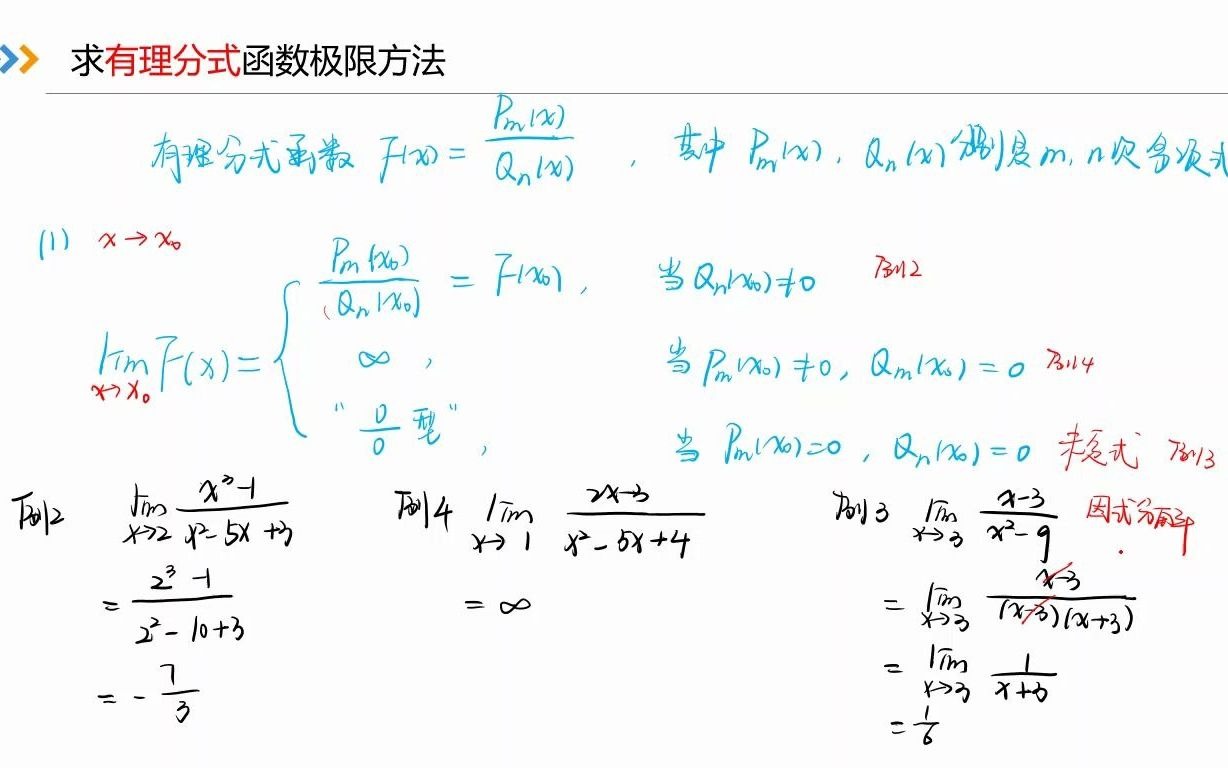 求有理分式函数极限方法
有理分式函数 F(x) = P_m(x) / Q_n(x) , 其中 P_m(x), Q_n(x) 分别是 m, n 次多项式
(1) x→x₀
lim_{x→x₀} F(x) = {
P_m(x₀) / Q_n(x₀) = F(x₀), 当 Q_n(x₀) ≠ 0 例2
∞, 当 P_m(x₀) ≠ 0, Q_m(x₀) = 0 例4
"0/0 型", 当 P_m(x₀) = 0, Q_n(x₀) = 0 未定式 例3
例2 lim_{x→2} (x³-1) / (x²-5x+3)
= (2³-1) / (2²-10+3)
= -7/3
例4 lim_{x→1} (2x-3) / (x²-5x+4)
= ∞
例3 lim_{x→3} (x-3) / (x²-9) 因式分解
= lim_{x→3} (x-3) / (x-3)(x+3)
= lim_{x→3} 1 / (x+3)
= 1/6